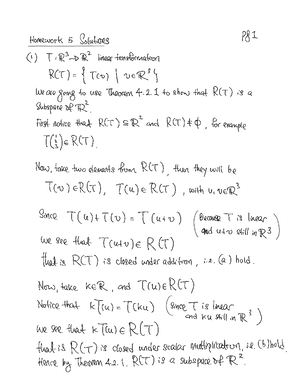 Homework 5 Solutions
pg 1
(1) T: ℝ³→ℝ² linear transformation
R(T) = { T(v) | v∈ℝ³ }
We are going to use Theorem 4.2.1 to show that R(T) is a
subspace of ℝ².
First notice that R(T) ⊆ ℝ² and R(T) ≠ ∅, for example
∈ R(T).
Now, take two elements from R(T), then they will be
T(v) ∈ R(T), T(u) ∈ R(T), with u, v∈ℝ³
Since T(u) + T(v) = T(u+v) (because T is linear
and u+v still in ℝ³)
we see that T(u+v) ∈ R(T)
that is R(T) is closed under addition, i.e. (a) hold.
Now, take k∈ℝ, and T(u) ∈ R(T)
Notice that kT(u) = T(ku) (since T is linear
and ku still in ℝ³)
we see that kT(u) ∈ R(T)
that is R(T) is closed under scalar multiplication, i.e. (b) hold.
Hence by Theorem 4.2.1, R(T) is a subspace of ℝ².